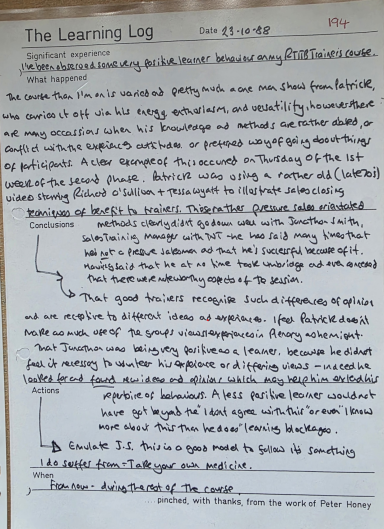 194
The Learning Log Date 23-10-88
Significant experience
I've been observed some very positive learner behaviour on my RTITB Trainers course.
What happened
The course than I'm on is varied and pretty much a one man show from Patrick,
who carries it off via his energy, enthusiasm, and versatility, however there
are many occassions when his knowledge and methods are rather dated, or
conflict with the experiences attitudes or preferred way of going about things
of participants. A clear example of this occured on Thursday of the 1st
week of the second phase. Patrick was using a rather old (late 70s)
video starring Richard O'Sullivan + Tessa Wyatt to illustrate sales closing
techniques of benefit to trainers. These rather pressure sales orientated
Conclusions methods clearly didn't go down well with Jonathan Smith,
Sales Training Manager with TNT - he has said many times that
he's not a pressure salesman and that he's successful because of it.
Having said that he at no time took umbridge and even conceded
that there were noteworthy aspects of the session.
That good trainers recognise such differences of opinion
and are receptive to different ideas and experiences. I feel Patrick doesn't
make as much use of the groups views/experiences in plenary as he might.
That Jonathan was being very positive as a learner, because he did not
feel it necessary to volunteer his experience or differing views - indeed he
looked for and found new ideas and opinions which may help him extend his
Actions repertoire of behaviours. A less positive learner wouldn't
have got beyond the "I don't agree with this" or even "I know
more about this than he does" learning blockages.
Emulate J.S. this is a good model to follow its something
I do suffer from - Take your own medicine.
When
From now - during the rest of the course
...pinched, with thanks, from the work of Peter Honey